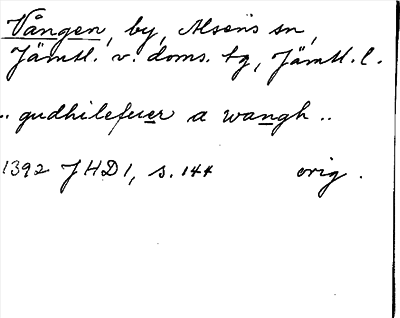 Vången, by, Alsens sn,
Jämtl. v. doms. tg, Jämtl. l.
.. gudhilefuer a wangh ..
1392 JHD 1, s. 144 orig.